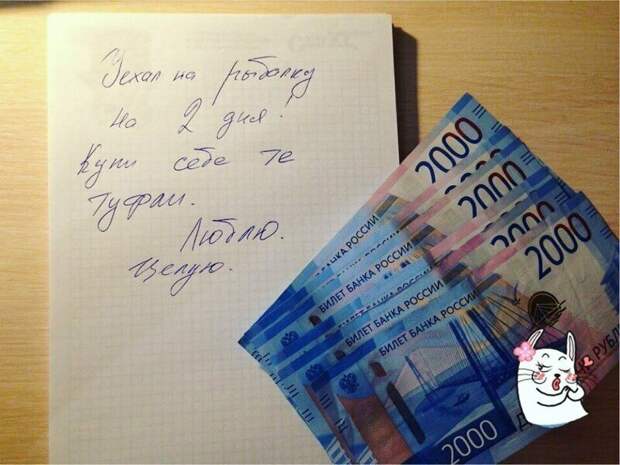 Уехал на рыбалку
на 2 дня!
Купи себе те
туфли.
Люблю.
Целую.
2000
2000
2000
2000
БИЛЕТ БАНКА РОССИИ
БИЛЕТ БАНКА РОССИИ
БИЛЕТ БАНКА РОССИИ
БИЛЕТ БАНКА РОССИИ
2000